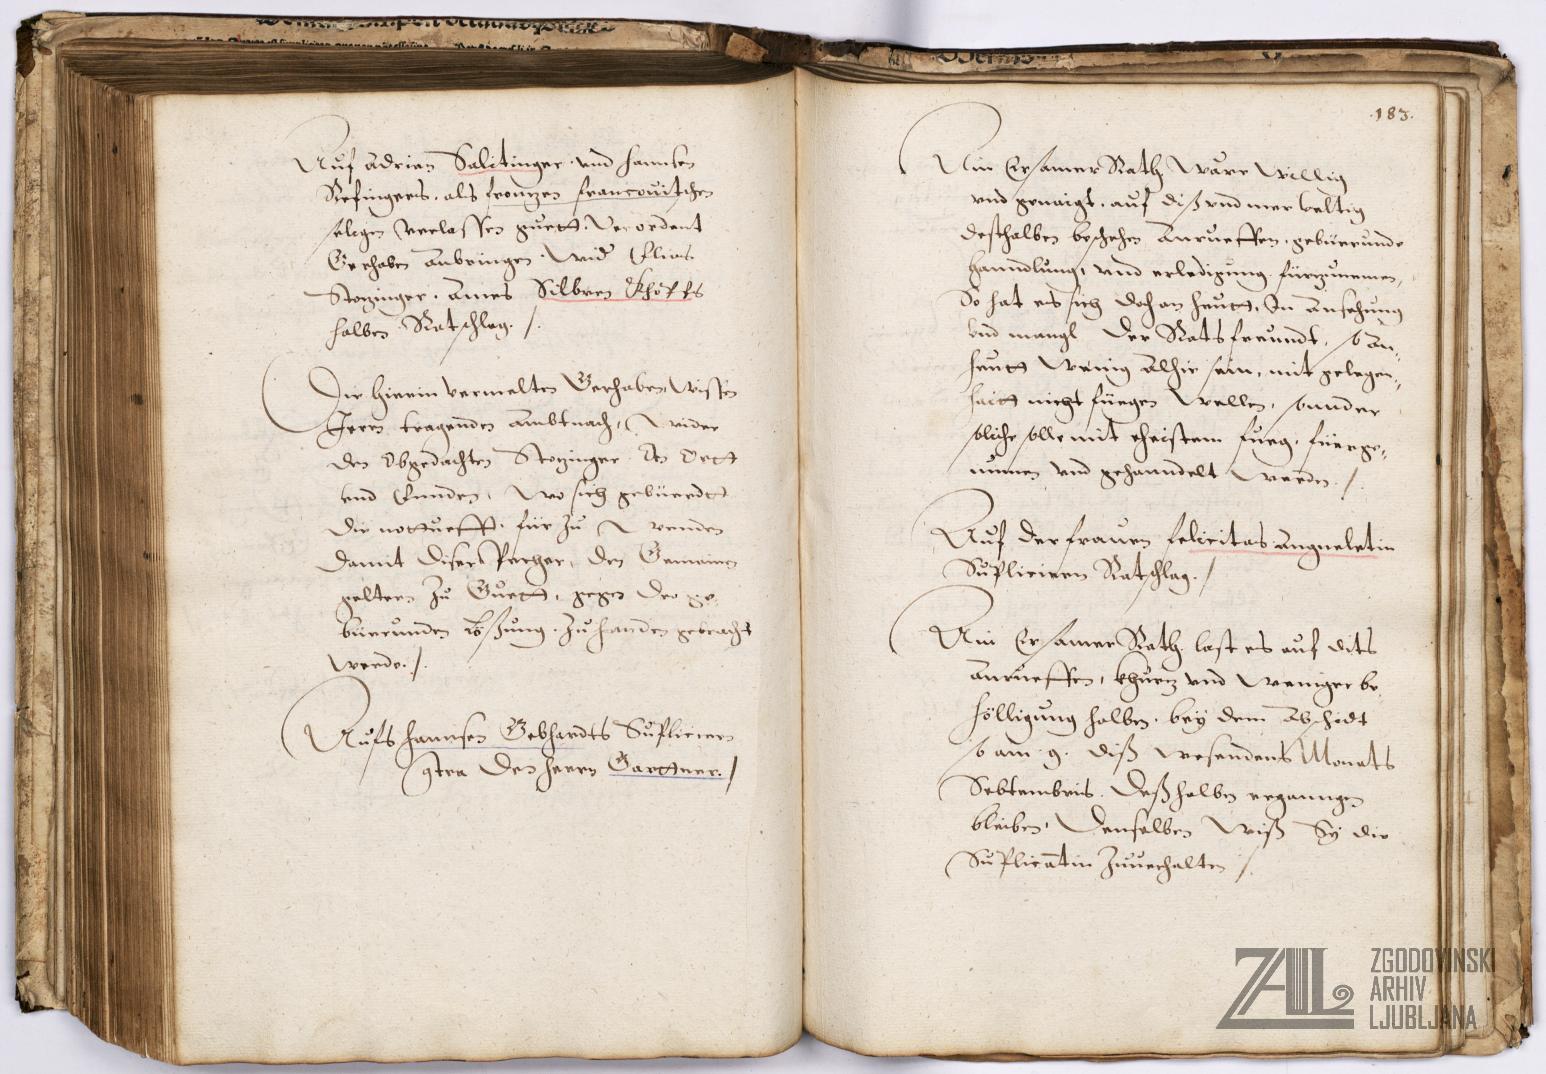 Auf Adrian Salitinger und Hannsen
Refingers, als Frantzen Francovitschen
seligen verlassen guett, Verordent
Gerhaben Anbringen wider Elias
Stozinger, Aines Silbren Khopfs
halben Ratschlag ./.
Die hierin vermelten Gerhaben, wissen
Irem tragenden Ambt nach, Wider
den Obgedachten Stozinger An Ortt
und Ennden, wo sich gebuerdt
die notturfft fur zu wenden
damit diser Pecher, den Gemainen
geltern zu Guett, gegen der ge-
buerunden losßung zu handen gebracht
werde ./.
Aufs Hannsen Gebhardts Supliciern
Contra den Herrn Garttner ./
.183.
Ain Ersamer Rath Wäre Willig
und genaigt, auf diß und mer
desthalben beschehen Anrueffen, gebüerunde
Hanndlung, und erledigung fürzunemen,
So hat es sich doch an heutt, In ansehung
und mangl der Ratsfreundt, so an-
heutt wenig Alhie sein, mit gelegen-
haitt nicht füegen wellen, sunder
soliche solle mit ehistem fueg, fürge-
numen und gehanndelt werden ./.
Auf der frauen Felicitas Angueletin
Supliciern Ratschlag ./
Ain Ersamer Rath last es auf dits
Anrueffen, khürtz und weniger be-
hölligung halben, bey dem Abschidt
so am 9. diß wesendens Monats
Septembris. Deßhalben ergangen
bleiben, Denselben wiß Sy die
Suplicantin zuuerhalten ./.
ZAL
ZGODOVINSKI
ARHIV
LJUBLJANA